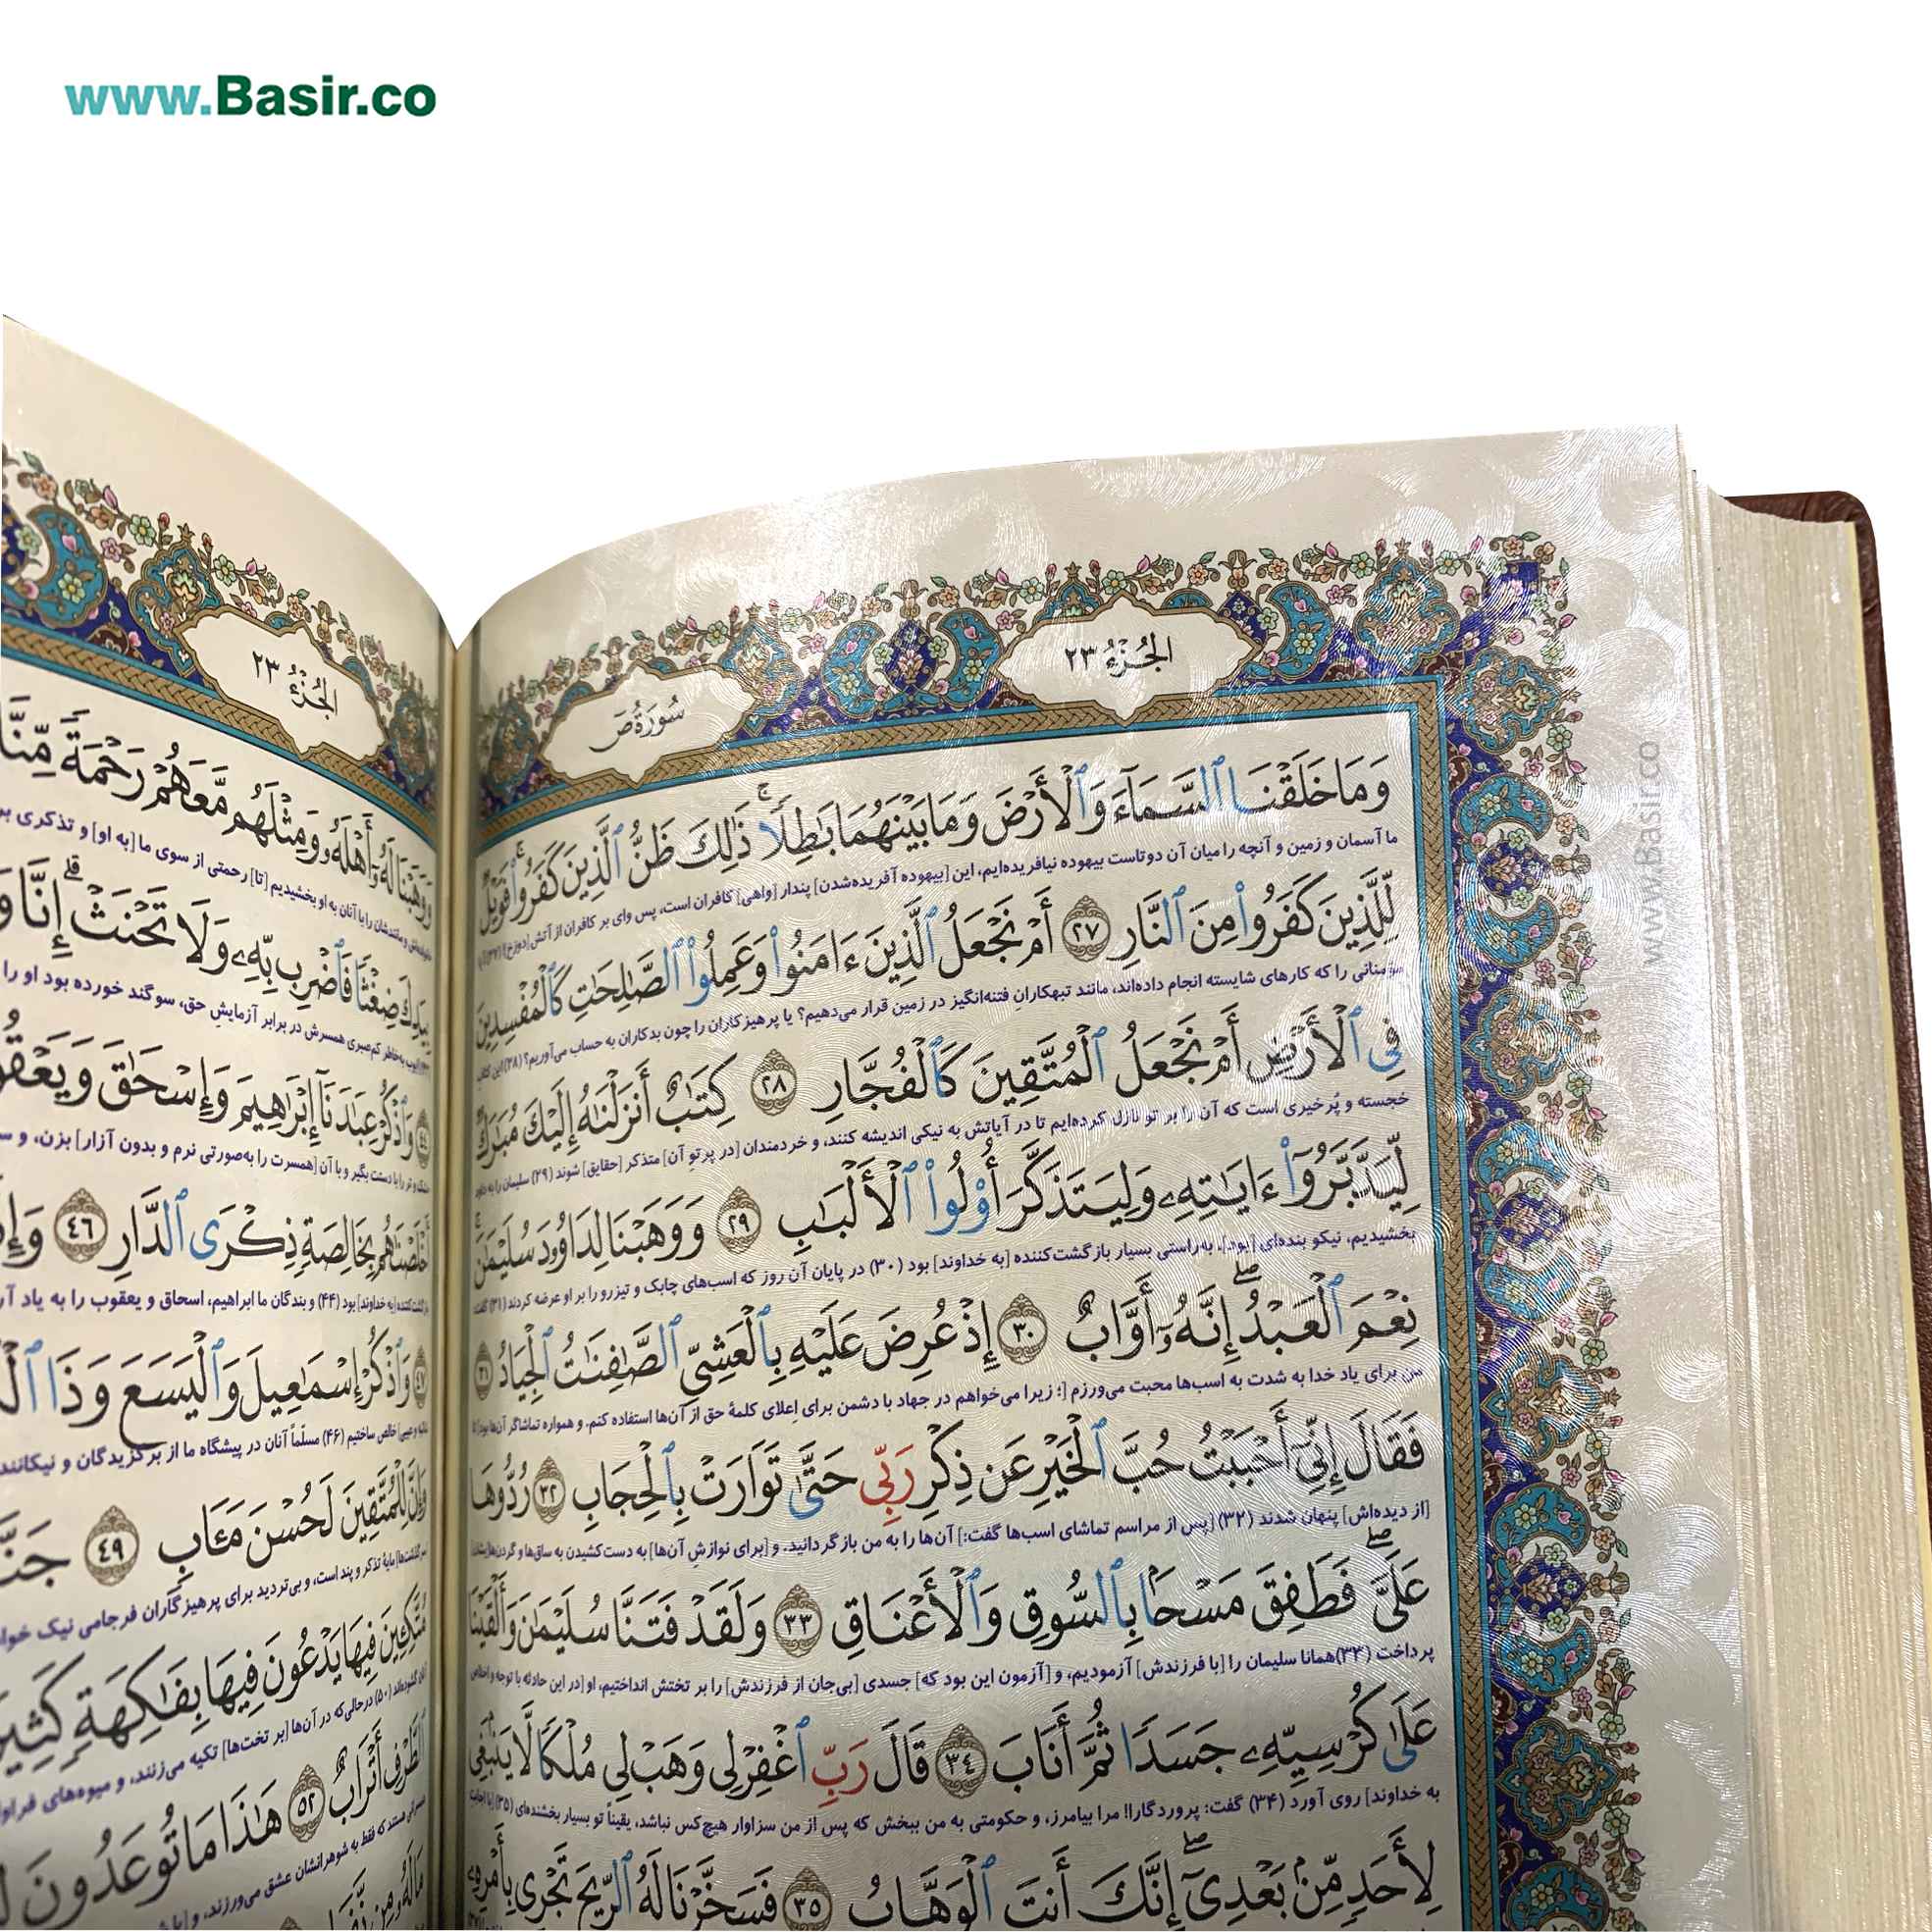 www.Basir.co
الجُزْءُ ٢٣
سُورَةُ صٓ
وَمَا خَلَقْنَا ٱلسَّمَآءَ وَٱلْأَرْضَ وَمَا بَيْنَهُمَا بَٰطِلًا ۚ ذَٰلِكَ ظَنُّ ٱلَّذِينَ كَفَرُوا۟ ۚ فَوَيْلٌ
ما آسمان و زمین و آنچه را میان آن دوتاست بیهوده نیافریده‌ایم، این [بیهوده آفریده‌شدن] پندار [واهی] کافران است، پس وای بر کافران از آتش [دوزخ]! (۲۷) آیا
لِّلَّذِينَ كَفَرُوا۟ مِنَ ٱلنَّارِ ٢٧ أَمْ نَجْعَلُ ٱلَّذِينَ ءَامَنُوا۟ وَعَمِلُوا۟ ٱلصَّٰلِحَٰتِ كَٱلْمُفْسِدِينَ
مؤمنانی را که کارهای شایسته انجام داده‌اند، مانند تبهکارانِ فتنه‌انگیز در زمین قرار می‌دهیم؟ یا پرهیزکاران را چون بدکاران به حساب می‌آوریم؟ (۲۸) این کتاب
فِى ٱلْأَرْضِ أَمْ نَجْعَلُ ٱلْمُتَّقِينَ كَٱلْفُجَّارِ ٢٨ كِتَٰبٌ أَنزَلْنَٰهُ إِلَيْكَ مُبَٰرَكٌ
خجسته و پُرخیری است که آن را بر تو نازل کرده‌ایم تا در آیاتش به نیکی اندیشه کنند، و خردمندان [در پرتوِ آن] متذکر [حقایق] شوند (۲۹) سلیمان را به داود
لِّيَدَّبَّرُوٓا۟ ءَايَٰتِهِۦ وَلِيَتَذَكَّرَ أُو۟لُوا۟ ٱلْأَلْبَٰبِ ٢٩ وَوَهَبْنَا لِدَاوُۥدَ سُلَيْمَٰنَ
بخشیدیم، نیکو بنده‌ای [بود]، به‌راستی بسیار بازگشت‌کننده [به خداوند] بود (۳۰) در پایان آن روز که اسب‌های چابک و تیزرو را بر او عرضه کردند (۳۱) گفت:
نِعْمَ ٱلْعَبْدُ ۖ إِنَّهُۥٓ أَوَّابٌ ٣٠ إِذْ عُرِضَ عَلَيْهِ بِٱلْعَشِىِّ ٱلصَّٰفِنَٰتُ ٱلْجِيَادُ ٣١
من برای یاد خدا به شدت به اسب‌ها محبت می‌ورزم [؛ زیرا می‌خواهم در جهاد با دشمن برای اِعلای کلمهٔ حق از آن‌ها استفاده کنم. و همواره تماشاگر آن‌ها بود] تا
فَقَالَ إِنِّىٓ أَحْبَبْتُ حُبَّ ٱلْخَيْرِ عَن ذِكْرِ رَبِّى حَتَّىٰ تَوَارَتْ بِٱلْحِجَابِ ٣٢ رُدُّوهَا
[از دیده‌اش] پنهان شدند (۳۲) [پس از مراسم تماشای اسب‌ها گفت:] آن‌ها را به من بازگردانید. و [برای نوازشِ آن‌ها] به دست کشیدن به ساق‌ها و گردن‌هایشان
عَلَىَّ ۖ فَطَفِقَ مَسْحًۢا بِٱلسُّوقِ وَٱلْأَعْنَاقِ ٣٣ وَلَقَدْ فَتَنَّا سُلَيْمَٰنَ وَأَلْقَيْنَا
پرداخت (۳۳) همانا سلیمان را [با فرزندش] آزمودیم، و [آزمون این بود که] جسدی [بی‌جان از فرزندش] را بر تختش انداختیم، او [در این حادثه با توجه و اخلاص
عَلَىٰ كُرْسِيِّهِۦ جَسَدًا ثُمَّ أَنَابَ ٣٤ قَالَ رَبِّ ٱغْفِرْ لِى وَهَبْ لِى مُلْكًا لَّا يَنۢبَغِى
به خداوند] روی آورد (۳۴) گفت: پروردگارا! مرا بیامرز، و حکومتی به من ببخش که پس از من سزاوار هیچ‌کس نباشد، یقیناً تو بسیار بخشنده‌ای (۳۵)
لِأَحَدٍ مِّنۢ بَعْدِىٓ ۖ إِنَّكَ أَنتَ ٱلْوَهَّابُ ٣٥ فَسَخَّرْنَا لَهُ ٱلرِّيحَ تَجْرِى بِأَمْرِهِۦ
www.Basir.co
الجُزْءُ ٢٣
وَوَهَبْنَا لَهُۥٓ أَهْلَهُۥ وَمِثْلَهُم مَّعَهُمْ رَحْمَةً مِّنَّا
و مانندشان را با آنان به او بخشیدیم [تا] رحمتی از سوی ما [به او] و تذکری
بِيَدِكَ ضِغْثًا فَٱضْرِب بِّهِۦ وَلَا تَحْنَثْ ۗ إِنَّا
به‌خاطر کم‌صبری همسرش در برابر آزمایشِ حق، سوگند خورده بود او را
وَٱذْكُرْ عِبَٰدَنَآ إِبْرَٰهِيمَ وَإِسْحَٰقَ وَيَعْقُو
را با دستت بگیر و با آن [همسرت را به‌صورتی نرم و بدون آزار] بزن، و
أَخْلَصْنَٰهُم بِخَالِصَةٍ ذِكْرَى ٱلدَّارِ ٤٦
[به خداوند] بود (۴۴) و بندگان ما ابراهیم، اسحاق و یعقوب را به یاد
٤٧ وَٱذْكُرْ إِسْمَٰعِيلَ وَٱلْيَسَعَ وَذَا
خالص ساختیم (۴۶) مسلّماً آنان در پیشگاه ما از برگزیدگان و نیکانند
وَإِنَّ لِلْمُتَّقِينَ لَحُسْنَ مَـَٔابٍ ٤٩ جَنَّ
مایهٔ تذکر و پند است، و بی‌تردید برای پرهیزگاران فرجامی نیک
مُتَّكِـِٔينَ فِيهَا يَدْعُونَ فِيهَا بِفَٰكِهَةٍ كَثِيرَ
(۵۰) درحالی‌که در آن‌ها [بر تخت‌ها] تکیه می‌زنند، و میوه‌های
ٱلطَّرْفِ أَتْرَابٌ ٥٢ هَٰذَا مَا تُوعَدُونَ
هستند که فقط به شوهرانشان عشق می‌ورزند، و
مَا لَهُۥ مِن